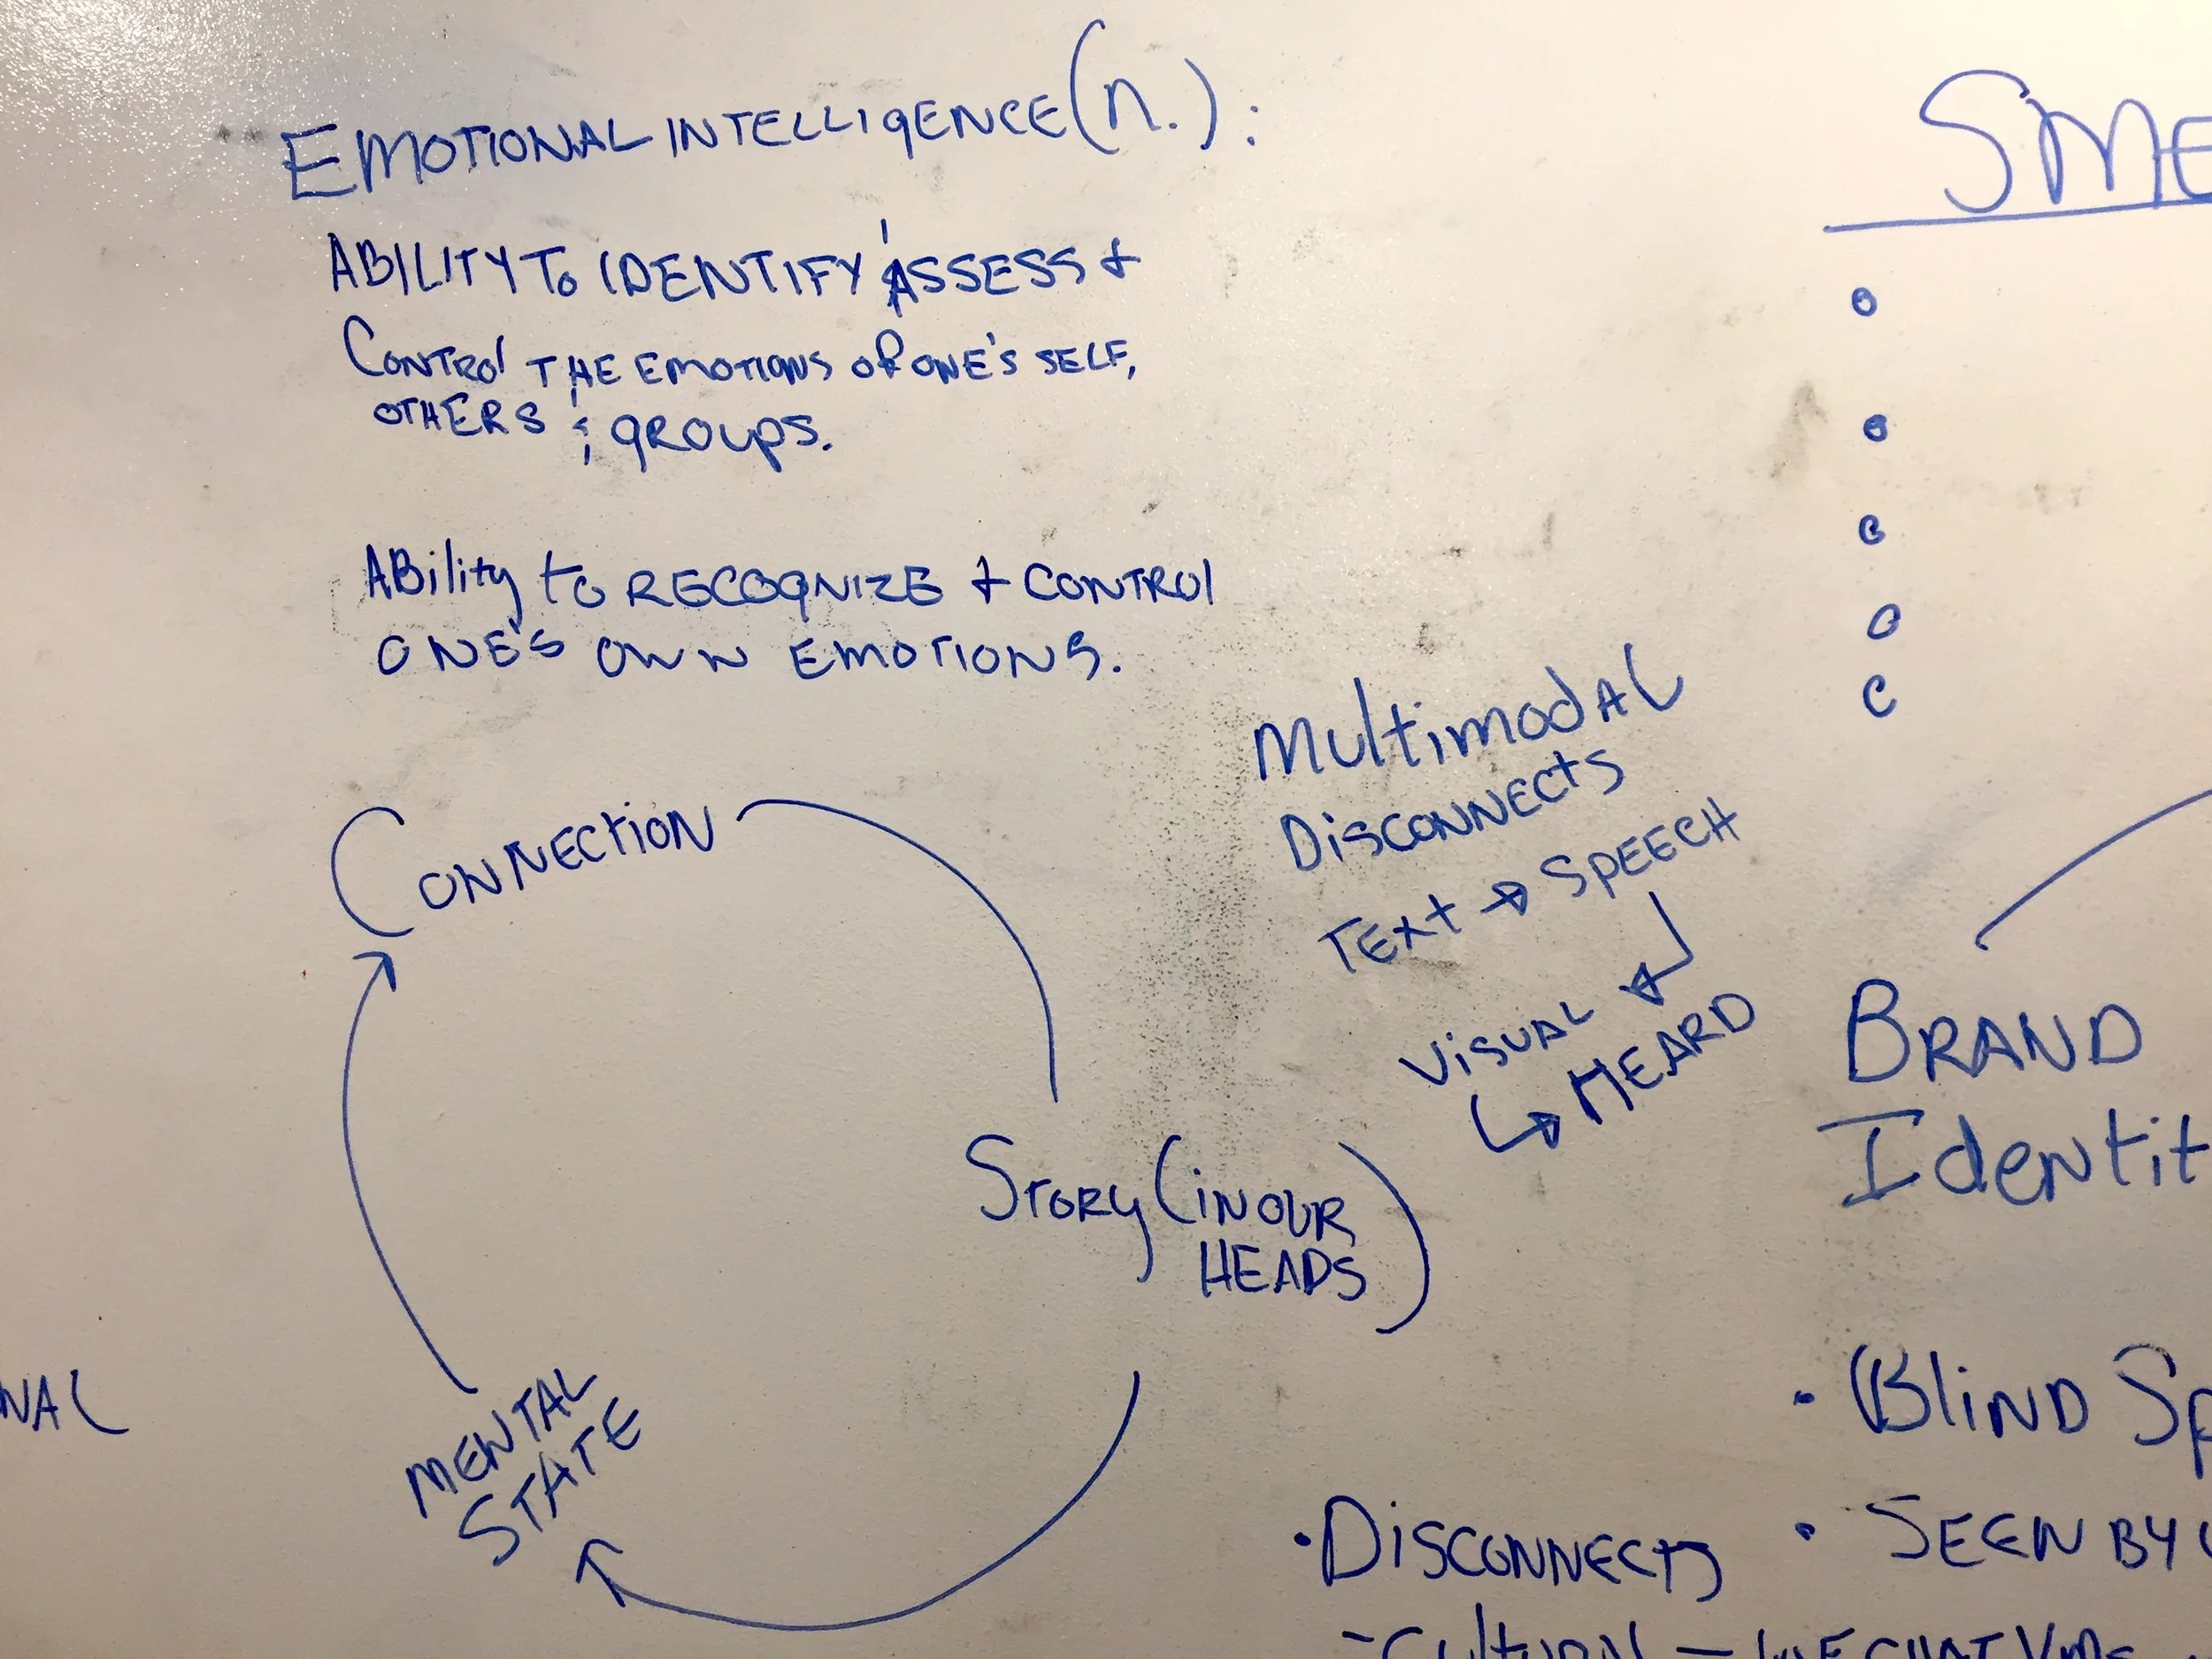 EMOTIONAL INTELLIGENCE (n.):
ABILITY TO IDENTIFY, ASSESS +
CONTROL THE EMOTIONS OF ONE'S SELF,
OTHERS & GROUPS.
ABility to RECOGNIZE + CONTROL
ONE'S OWN EMOTIONS.
CONNECTION
STORY (IN OUR
HEADS)
MENTAL
STATE
MultimodAL
DISCONNECtS
TEXt → SPEECH
VISUAL
↳ HEARD
SME
BRAND
Identit
NAL
• BLIND Sp
• DISCONNECtS
• SEEN BY
- CULTURAL - WECHAT VMs